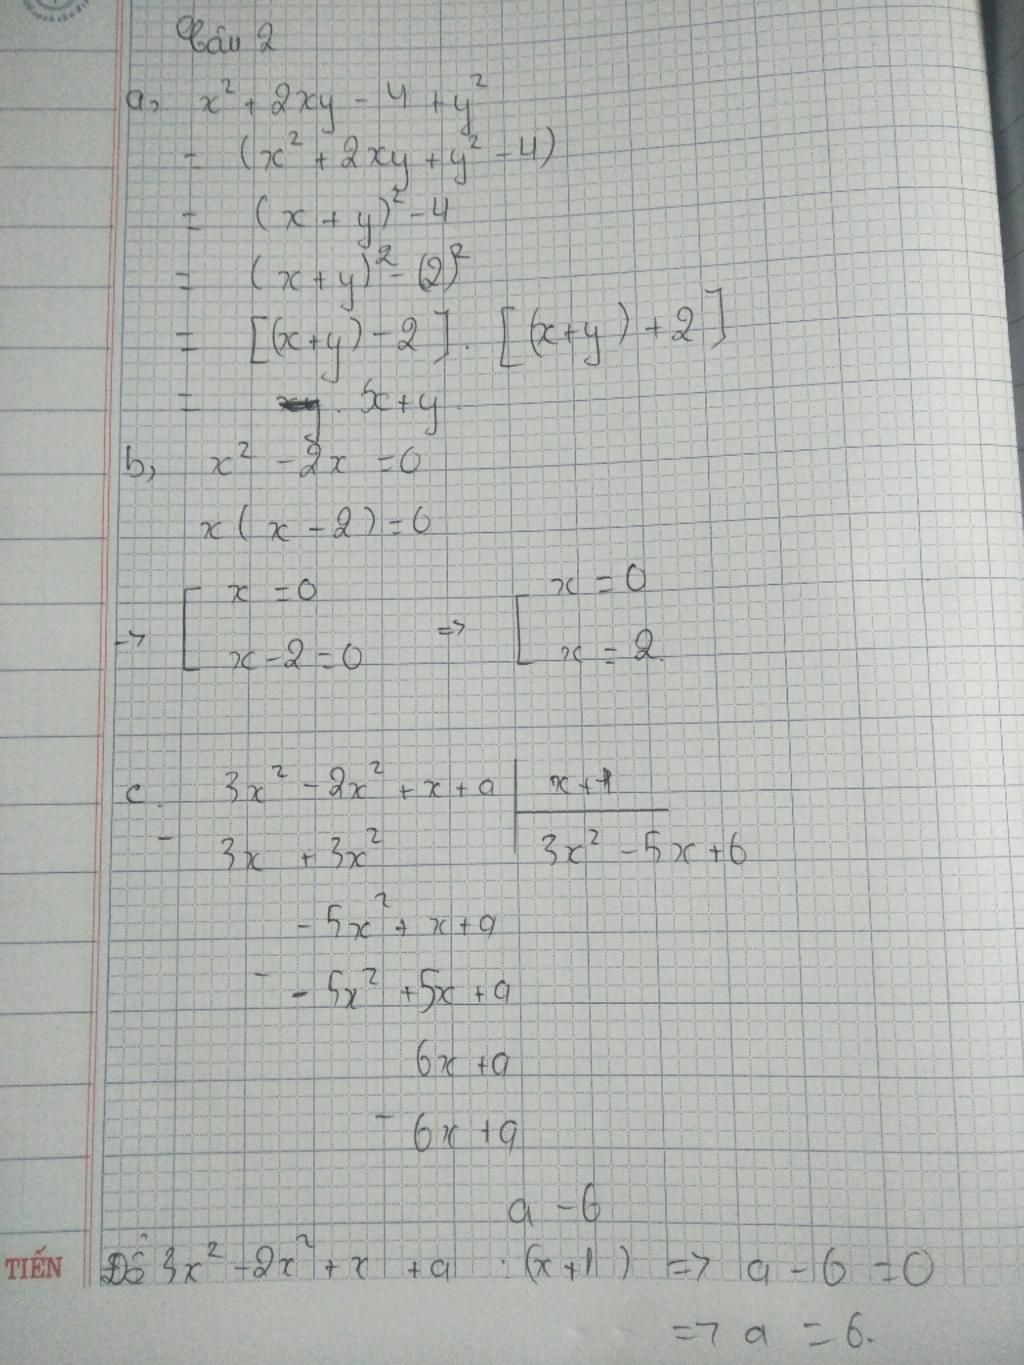 Câu 2
a, x² + 2xy - 4 + y²
= (x² + 2xy + y² - 4)
= (x + y)² - 4
= (x + y)² - (2)²
= [(x+y) - 2] . [(x+y) + 2]
= . 5x + y
b, x² - 2x = 0
x ( x - 2 ) = 0
→ [ x = 0 => [ x = 0
x - 2 = 0 x = 2
c. 3x² - 2x² + x + a | x + 1
- 3x + 3x² 3x² - 5x + 6
- 5x² + x + a
- - 5x² + 5x + a
6x + a
- 6x + a
a - 6
TIẾN Để 3x² - 2x² + x + a : (x + 1) => a - 6 = 0
=> a = 6.